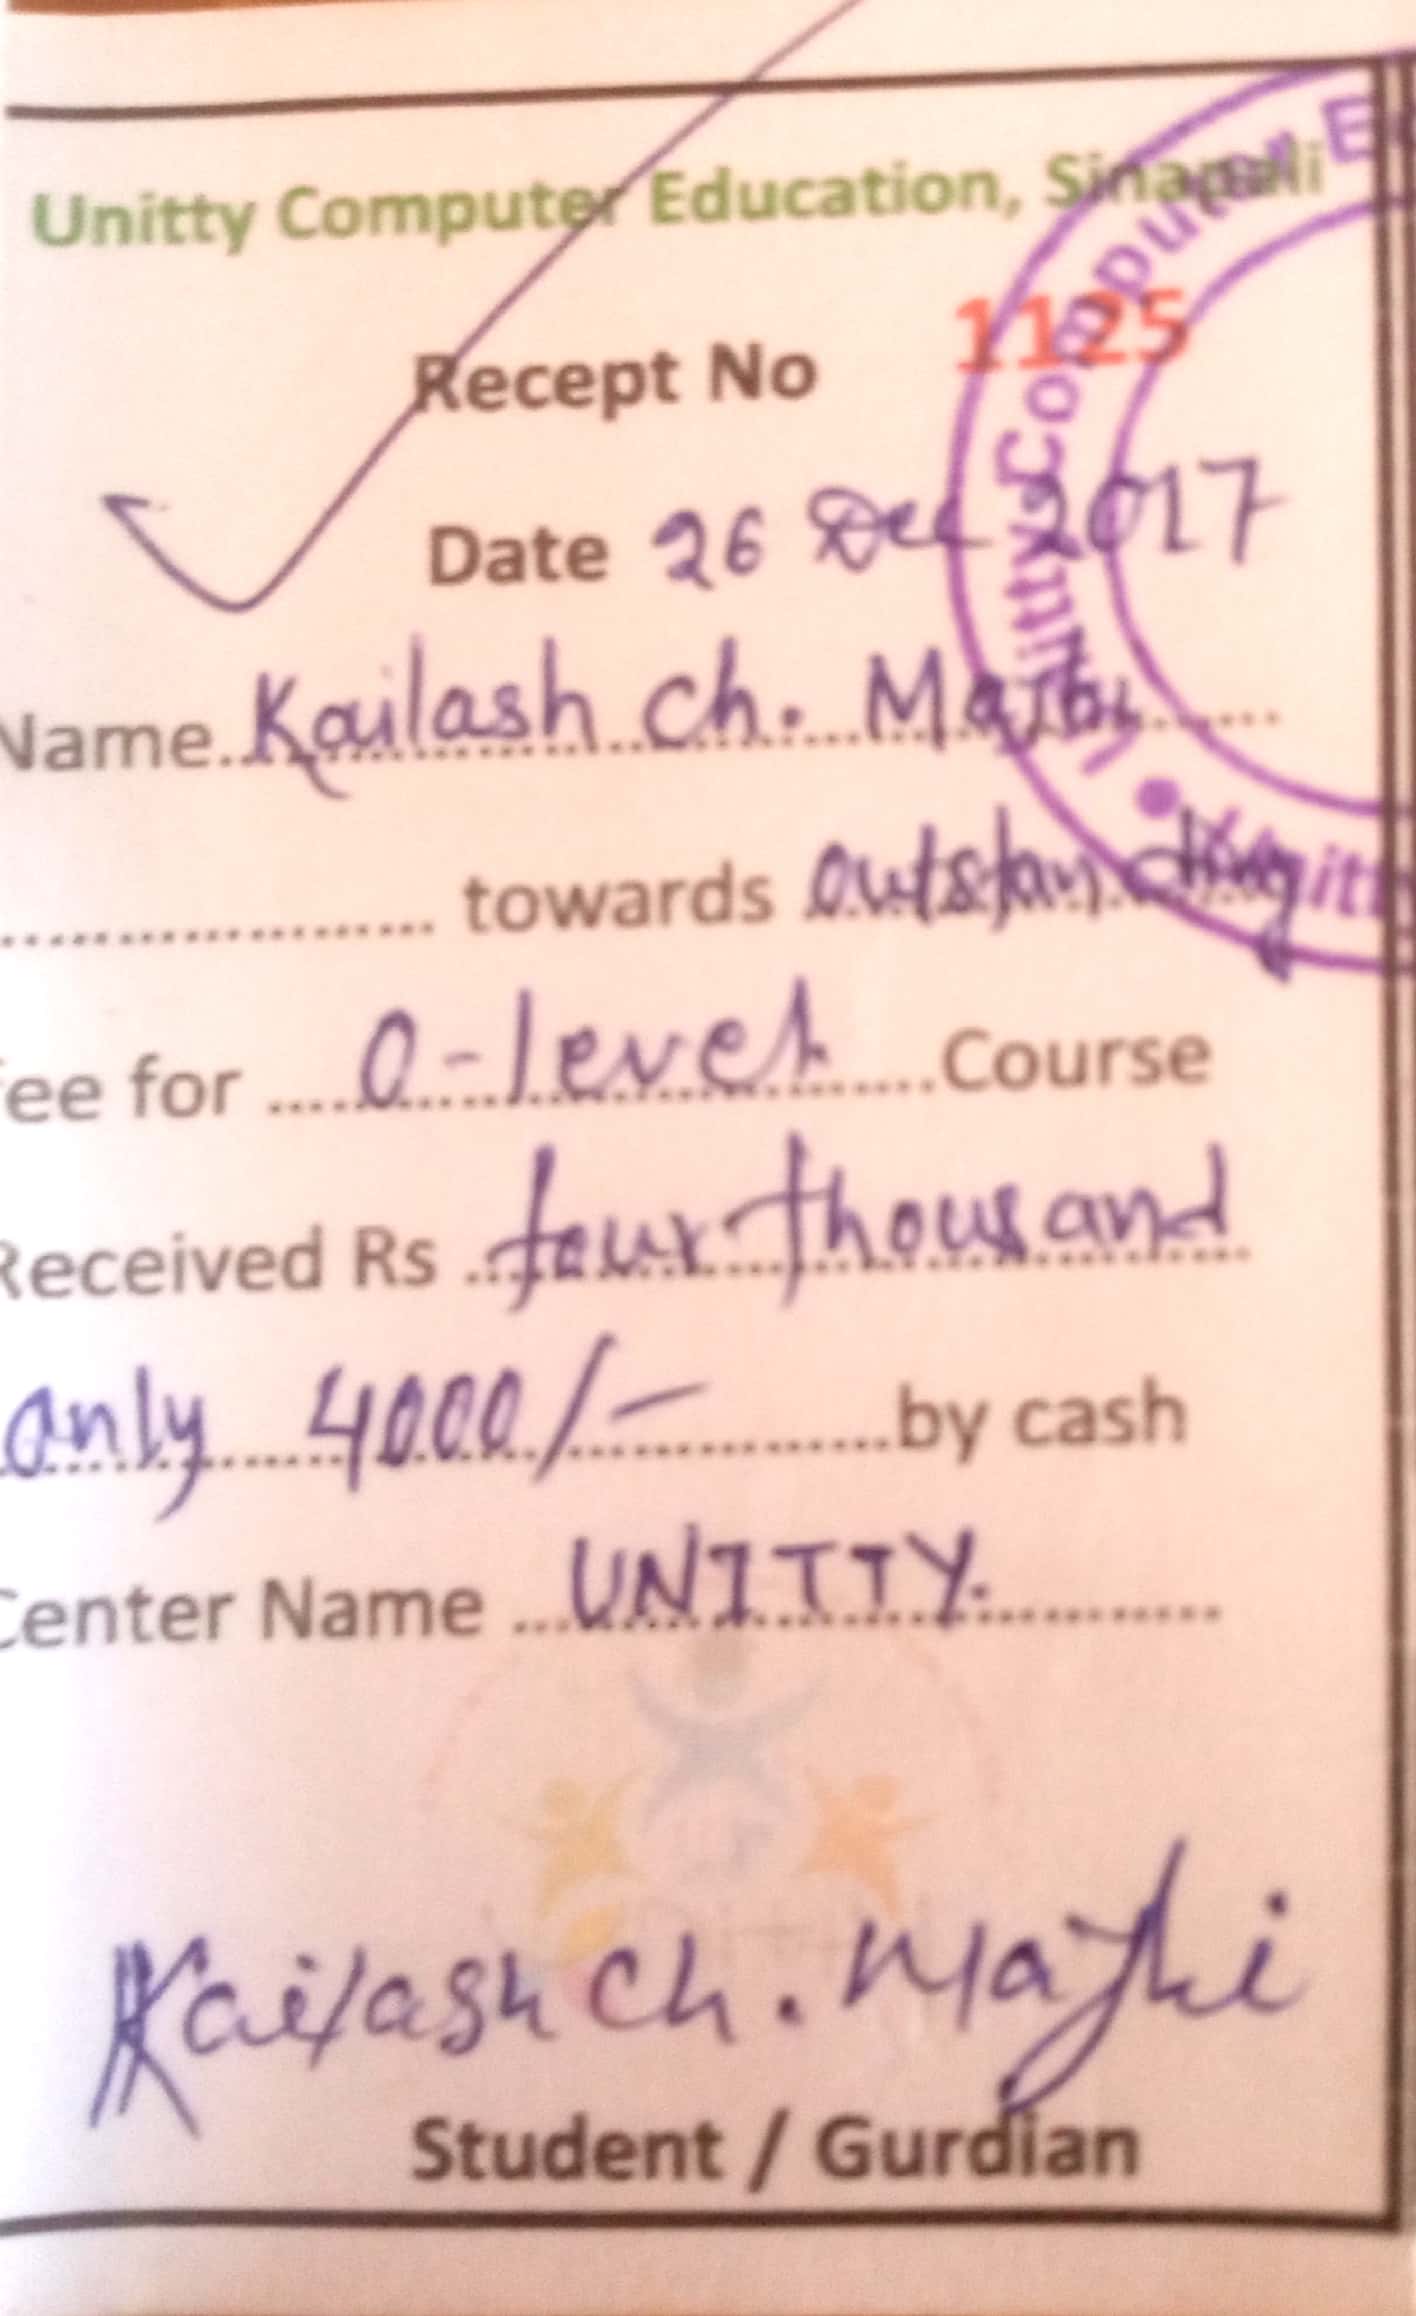 Unitty Computer Education, Sinapali
Recept No 1125
Date 26 Dec 2017
Name..Kailash ch. Majhi......
.................... towards outstanding
ee for ....O-level.....Course
Received Rs ..four thousand
only 4000/-...........by cash
Center Name ...UNITTY.............
Kailash ch. Majhi
Student / Gurdian
Unitty Computer E